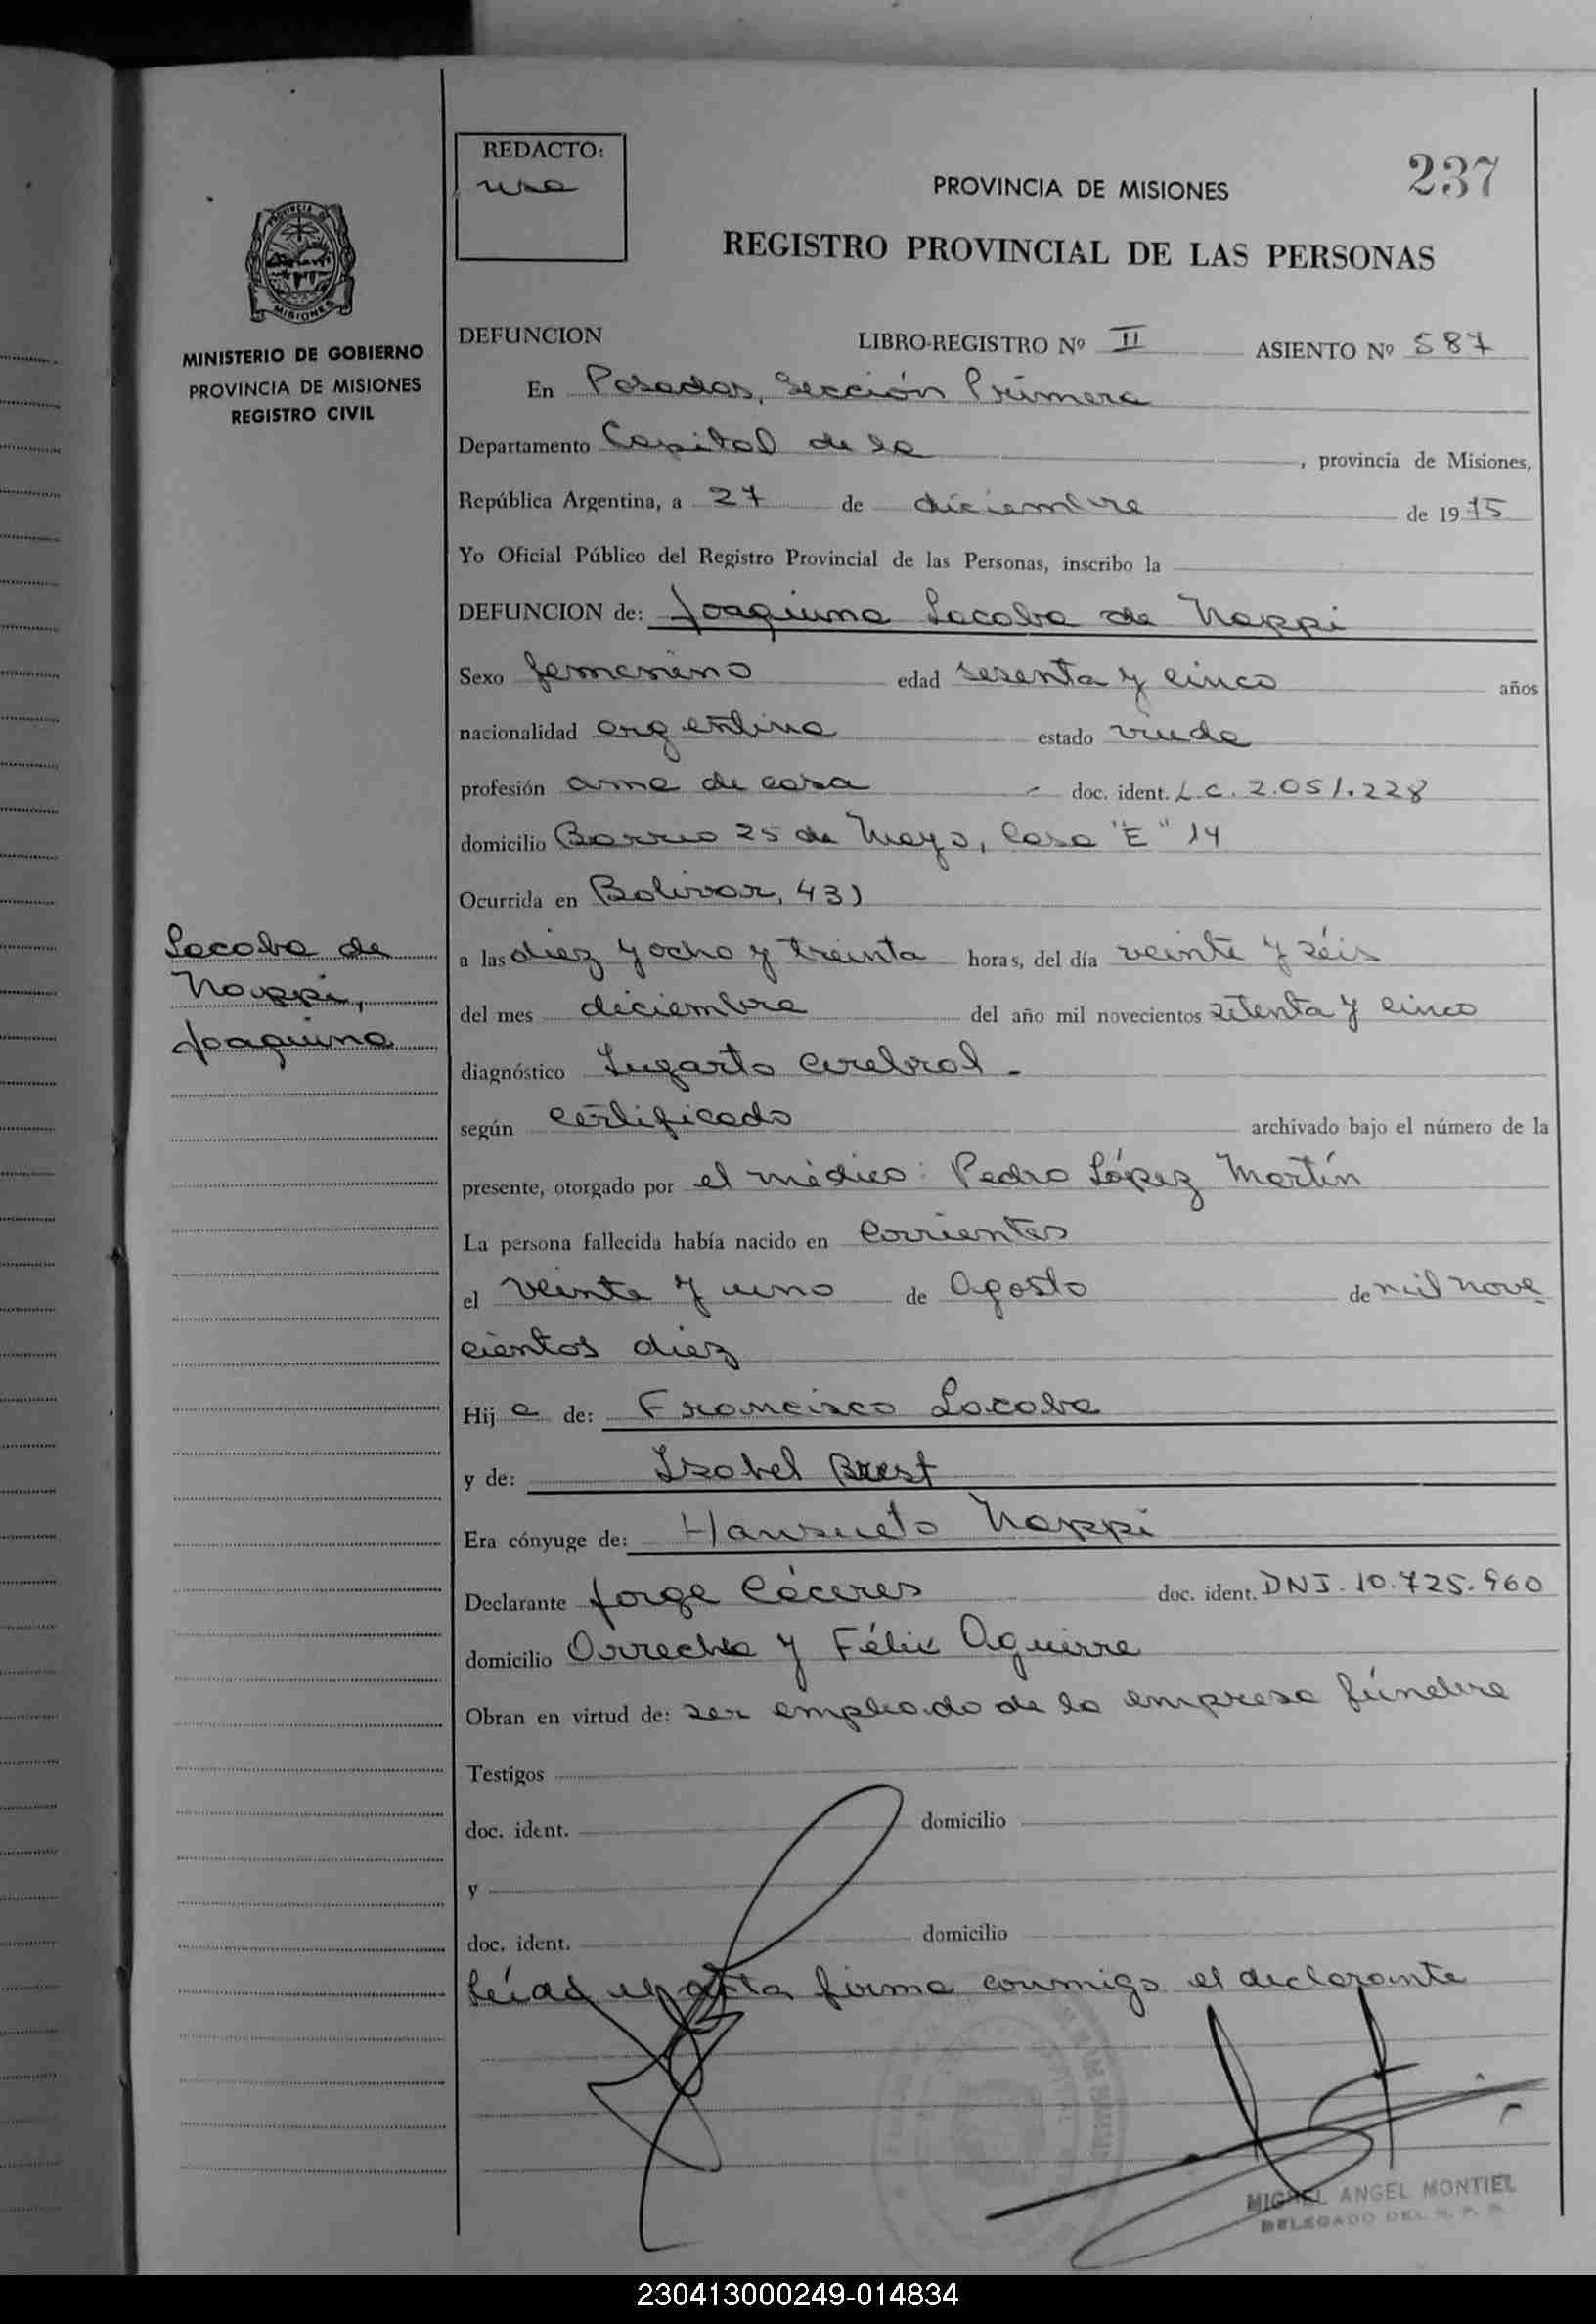 REDACTO:
237
PROVINCIA DE MISIONES
REGISTRO PROVINCIAL DE LAS PERSONAS
PROVINCIA DE
MISIONES
MINISTERIO DE GOBIERNO
PROVINCIA DE MISIONES
REGISTRO CIVIL
DEFUNCION LIBRO-REGISTRO Nº II ASIENTO Nº 587
En Posadas, Sección Primera
Departamento Capital de la , provincia de Misiones,
República Argentina, a 27 de diciembre de 1975
Yo Oficial Público del Registro Provincial de las Personas, inscribo la
DEFUNCION de: Joaquina Lacoba de Nappi
Sexo femenino edad sesenta y cinco años
nacionalidad argentina estado viuda
profesión ama de casa - doc. ident. L.C. 2.051.228
domicilio Barrio 25 de Mayo, Casa "E" 14
Ocurrida en Bolivar, 431
Lacoba de
Nappi,
Joaquina
a las diez y ocho y treinta horas, del día veinte y séis
del mes diciembre del año mil novecientos setenta y cinco
diagnóstico Infarto cerebral -
según certificado archivado bajo el número de la
presente, otorgado por el médico: Pedro López Martín
La persona fallecida había nacido en Corrientes
el veinte y uno de Agosto de mil nove
cientos diez
Hij a de: Francisco Lacoba
y de: Isabel Brest
Era cónyuge de: Hansueto Nappi
Declarante Jorge Cáceres doc. ident. DNI. 10.725.960
domicilio Orrechea y Félix Aguirre
Obran en virtud de: ser empleado de la empresa fúnebre
Testigos
doc. ident. domicilio
y
doc. ident. domicilio
Leída el acta firma conmigo el declarante
MIGUEL ANGEL MONTIEL
DELEGADO DEL R. P. P.
230413000249-014834